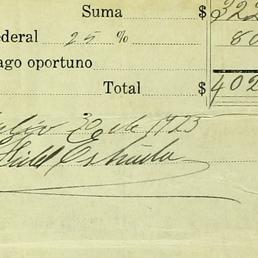 Suma $ 322
ederal 25 % 80
ago oportuno
Total $ 402
Julio 30 de 1925
Estrada